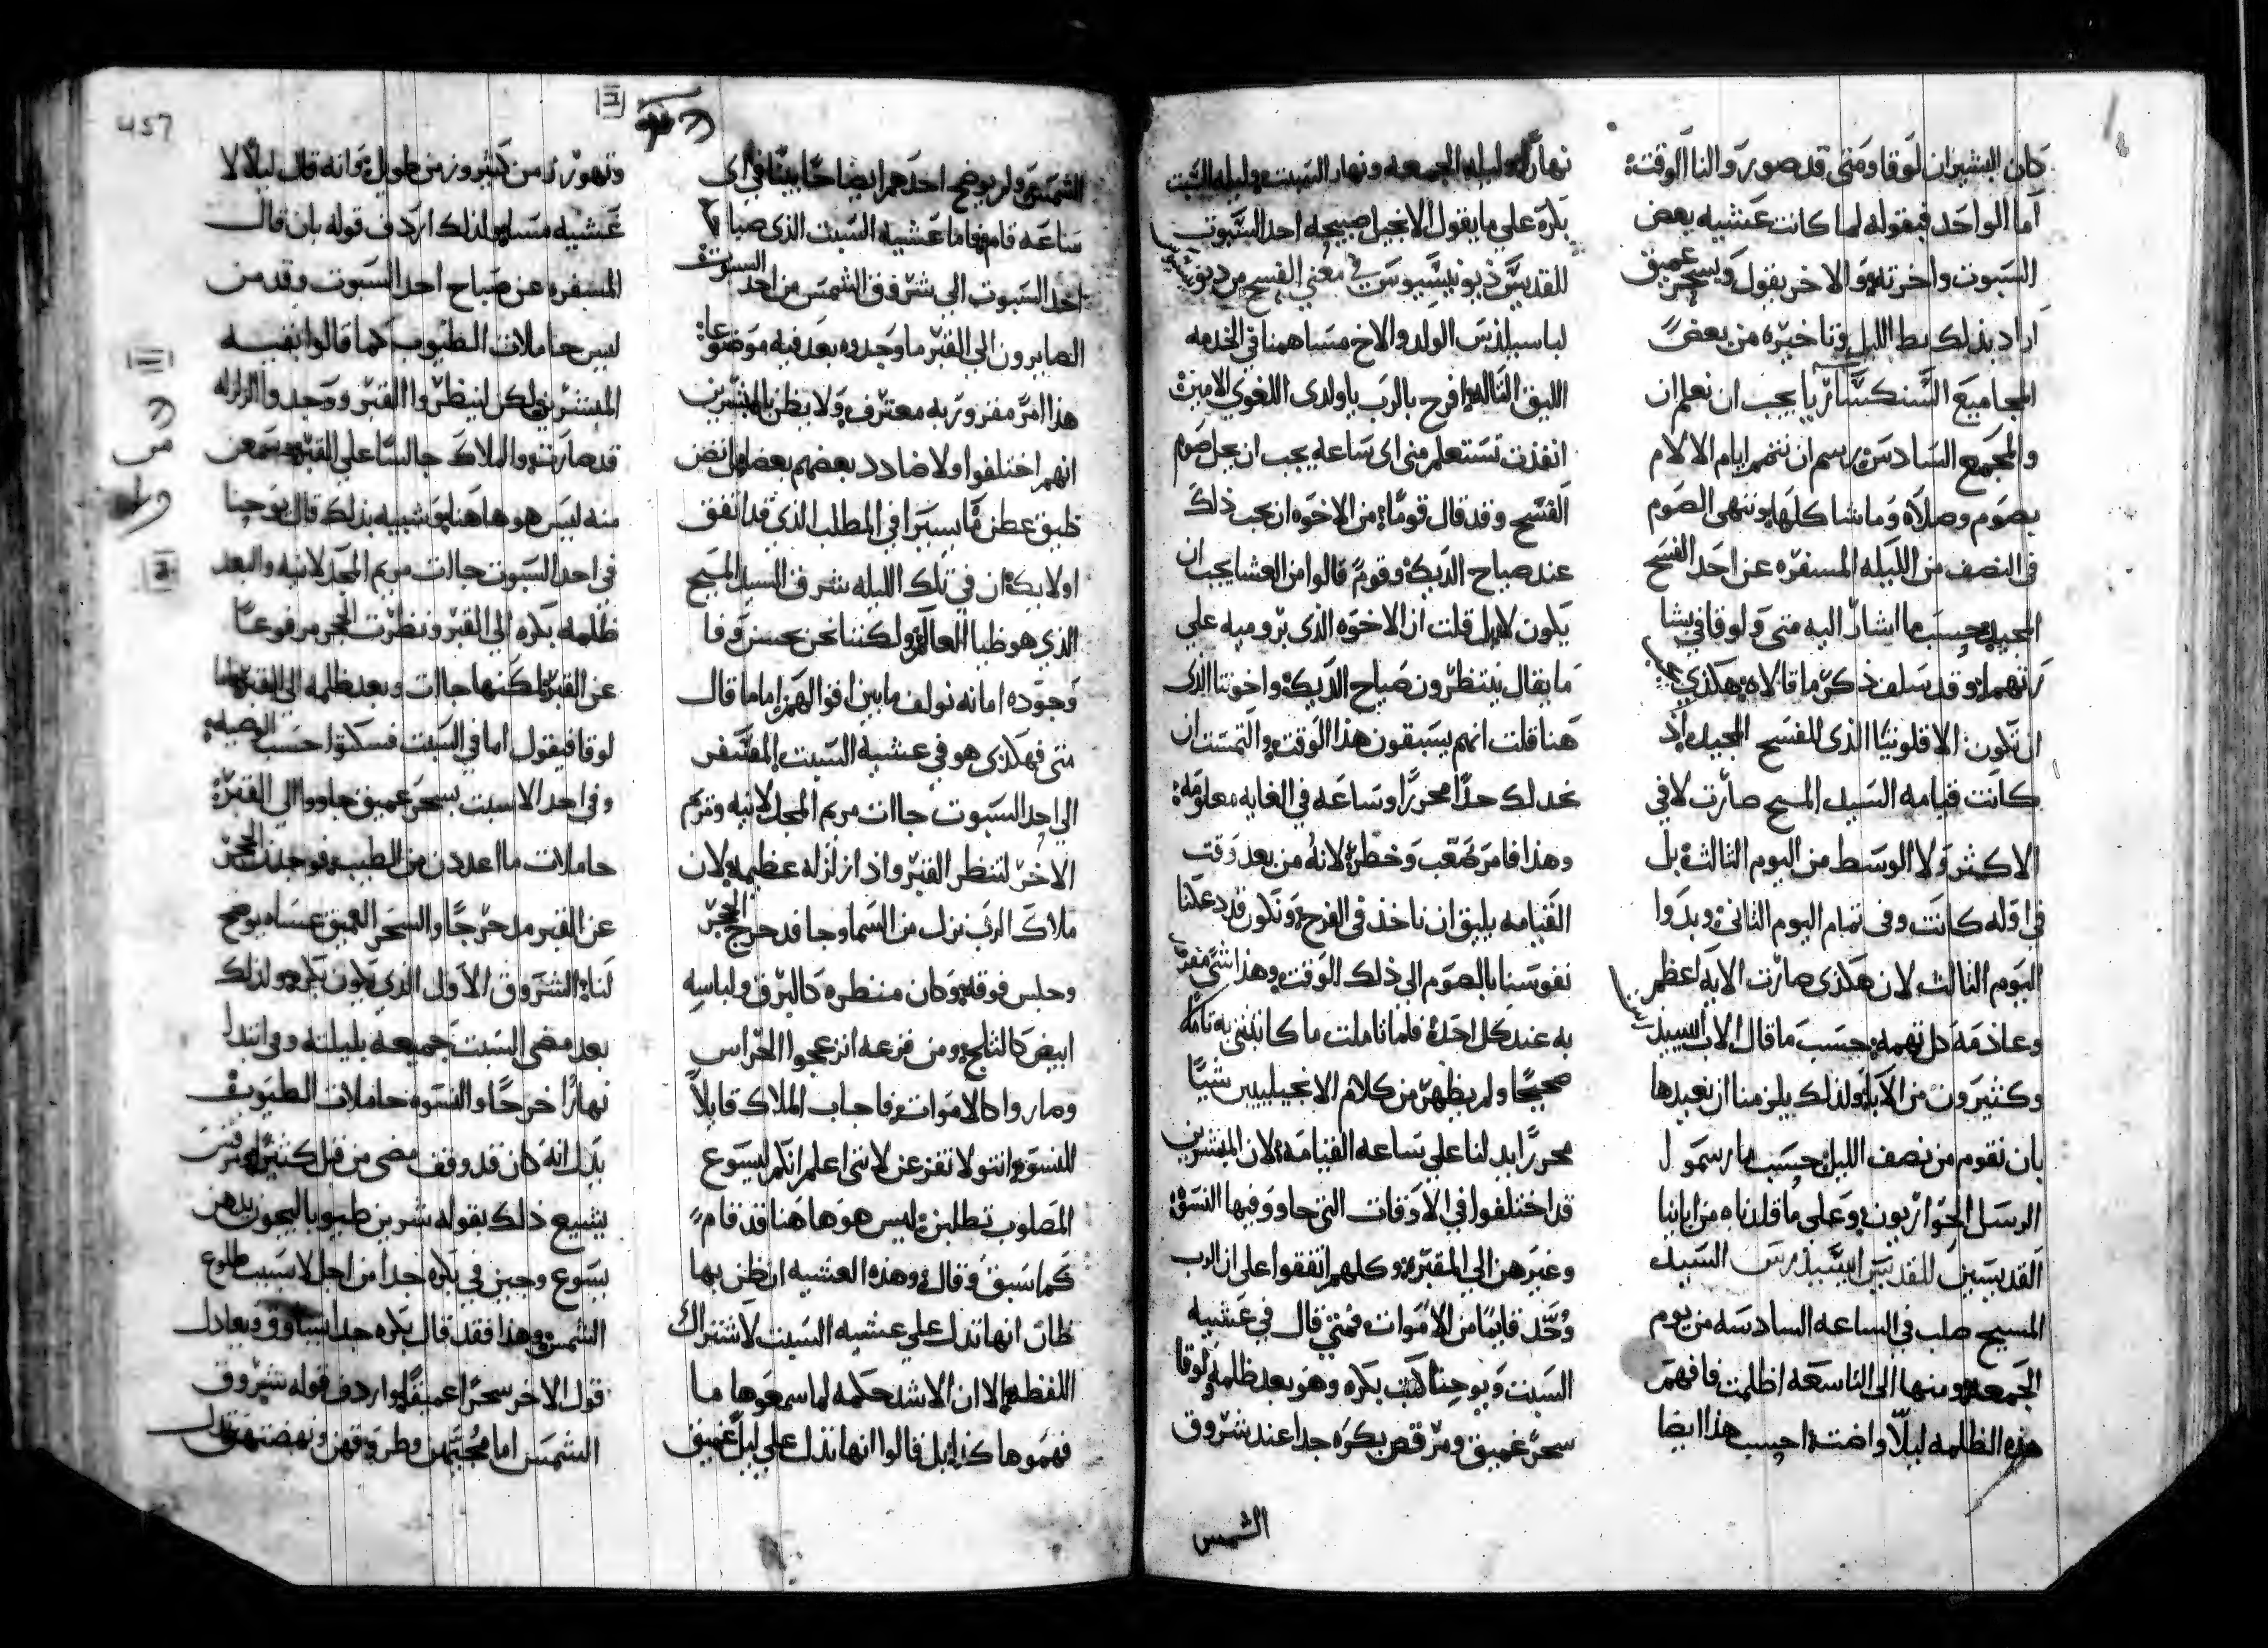 كان البشيران لوقا ومتى قد صورو النا الوقت
اما الواحد فبقوله لما كانت عشيه بعض
السبوت واخرته والاخر بقول وبسحر عميق
اراد بذلك بط الليل وتاخيره من بعض
المجاميع السنكسارىا يجب ان نعلم ان
والمجمع السادس يرسم ان نتمم ايام الالام
بصوم وصلاه وما شاكلها وننهى الصوم
في النصف من الليله المسفره عن احد الفسح
المجيد بحسب ما اشار اليه متى ولوقا في بشا
رتهما وقد سلف ذكر ما قالاه هكذي
ان تكون الاقلونيا الذى للفسح المجيد اذ
كانت قيامه السيد المسيح صارت لا في
الاكثر ولا الوسط من اليوم الثالث بل
في اوله كانت وفى تمام اليوم الثانى وبدوا
اليوم الثالث لان هكذى صارت الايه اعظم
وعادمه كل تهمه حسب ما قال الاب
وكثيرون من الابا ولذلك يلزمنا ان نعيدها
بان نقوم من نصف الليل حسب ما رسمو ا
الرسل الحواريون وعلى ما قلدناه من اباينا
القديسين للقديس السيد
المسيح صلب فى الساعه السادسه من يوم
الجمعه ومنها الى التاسعه اظلمت فافهم
هذه الظلمه ليلا واضته احسب هذا ايضا
نهارا وليله الجمعه ونهار السبت وليله السبت
بكره علي ما يقول الانجيل صبيحه احد السبوت
للقديس ذيونيسيوس في معني الفسح من
لباسيليذس الولد والاخ مساهمنا في الخدمه
الليق التاله افرح بالرب ياولدى اللغوي الامين
انفذت تستعلم مني اى ساعه يجب ان يحل صوم
الفسح وقد قال قوما من الاخوه ان يجب ذلك
عند صياح الديك وقوم قالوا من العشا يجب ان
يكون لا بل قلت ان الاخوه الذى بروميه علي
ما يقال ينتظرون صياح الديك واخوتنا الذى
هنا قلت انهم يسبقون هذا الوقت والتمست ان
نحد لك حدا محررا وساعه في الغايه معلومه
وهذا فامر صعب وخطر لانه من بعد وقت
القيامه يليق ان ناخذ في الفرح ونكون قد دعكنا
نفوسنا بالصوم الى ذلك الوقت وهذا شى مقر
به عند كل احد فلما تاملت ما كاتبتني به تامله
صحيحا ولم يظهر من كلام الانجيليين شيا
محررا يدلنا علي ساعه القيامه لان المبشرين
قد اختلفوا في الاوقات التي جاوو فيها النسوه
وغيرهن الي المقبره وكلهم اتفقوا على ان الرب
وجد قايما من الاموات فمتي قال في عشيه
السبت ويوحنا كتب بكره وهو بعد ظلمه ولوقا
سحر عميق ومرقص بكره جدا عند شروق
الشمس
الشمس ولم يوضح احدهم ايضاحا بينا في اى
ساعه قام فاما عشيه السبت الذى صباح
احد السبوت الي شروق الشمس من احد السبوت
الصايرون الي القبر ما وجدوه بعد فيه موضوعا
هذا امر مقرور به معترف ولا يظن بالمبشرين
انهم اختلفوا ولا ضادد بعضهم بعض بل نض
ظيق عطن ما يسيرا في المطلب الذى قد اتفق
اولايك ان في تلك الليله شرق السيد المسيح
الذي هو ظيا العالم ولكننا نحن بحسن وفا
وجوده امانه نولف ما بين اقوالهم اما ما قال
متى فهكذى هو في عشيه السبت المسفر
الي احد السبوت جاات مريم المجدلانيه ومريم
الاخر لتنظر القبر واذا زلزله عظيمه لان
ملاك الرب نزل من السما وجا فدحرج الحجر
وجلس فوقه وكان منظره كالبرق ولباسه
ابيض كالثلج ومن فزعه انزعجوا الحراس
وصاروا كالاموات فاجاب الملاك قايلا
للنسوه انتو لا تفزعن لانني اعلم انكم ليسوع
المصلوب تطلبن ليس هو هاهنا قد قام
كما سبق وقال وهذه العشيه ان ظن بها
ظان انها تدل علي عشيه السبت لاشتراك
اللفظه الا ان الاشد حكمه لما سمعوها ما
فهموها كذا بل قالوا انها تدل علي ليل عميق
وتهور زمن كثير وزمن طويل وانه قال ليلا لا
عشيه مسا ولذلك اردف قوله بان قال
المسفره عن صباح احد السبوت وقد من
ليس حاملات الطيوب كما قالوا بقيه
المبشرين لكن لينظروا القبر ووجدوا الزلزله
قد صارت والملاك جالسا على القبر وسمعن
منه ليس هو هاهنا وشبيه بذلك قال يوحنا
في احد السبوت جاات مريم المجدلانيه والبعد
ظلمه بكره الي القبر ونظرت الحجر مرفوعا
عن القبر لكنها جاات وبعد ظلمه الى القبر
لوقا فيقول اما في السبت فسكتوا حسب الوصيه
وفى احد الاسبت بسحر عميق جاووا الي القبر
حاملات ما اعددن من الطيب فوجدن الحجر
عن القبر مدحرجا والسحر العميق عساه يوضح
لنا الشروق الاول الذى يكون بكره ولذلك
بعد مضى السبت جميعه بليلته وفى ابتدا
نهارا خر جا والنسوه حاملات الطيوب
بدل انه كان قد وقف مضى من قبل كثير
يشيع ذلك بقوله شرين طيوبا ليجون يدهن
يسوع وجين في بكره جدا من احد الاسبت طلوع
الشمس وهذا فقد قال بكره جدا يساوق ويعادل
قول الاخر سحرا عميقا واردف قوله شروق
الشمس اما مجيهن وطريقهن ونهضتهن تدل
457